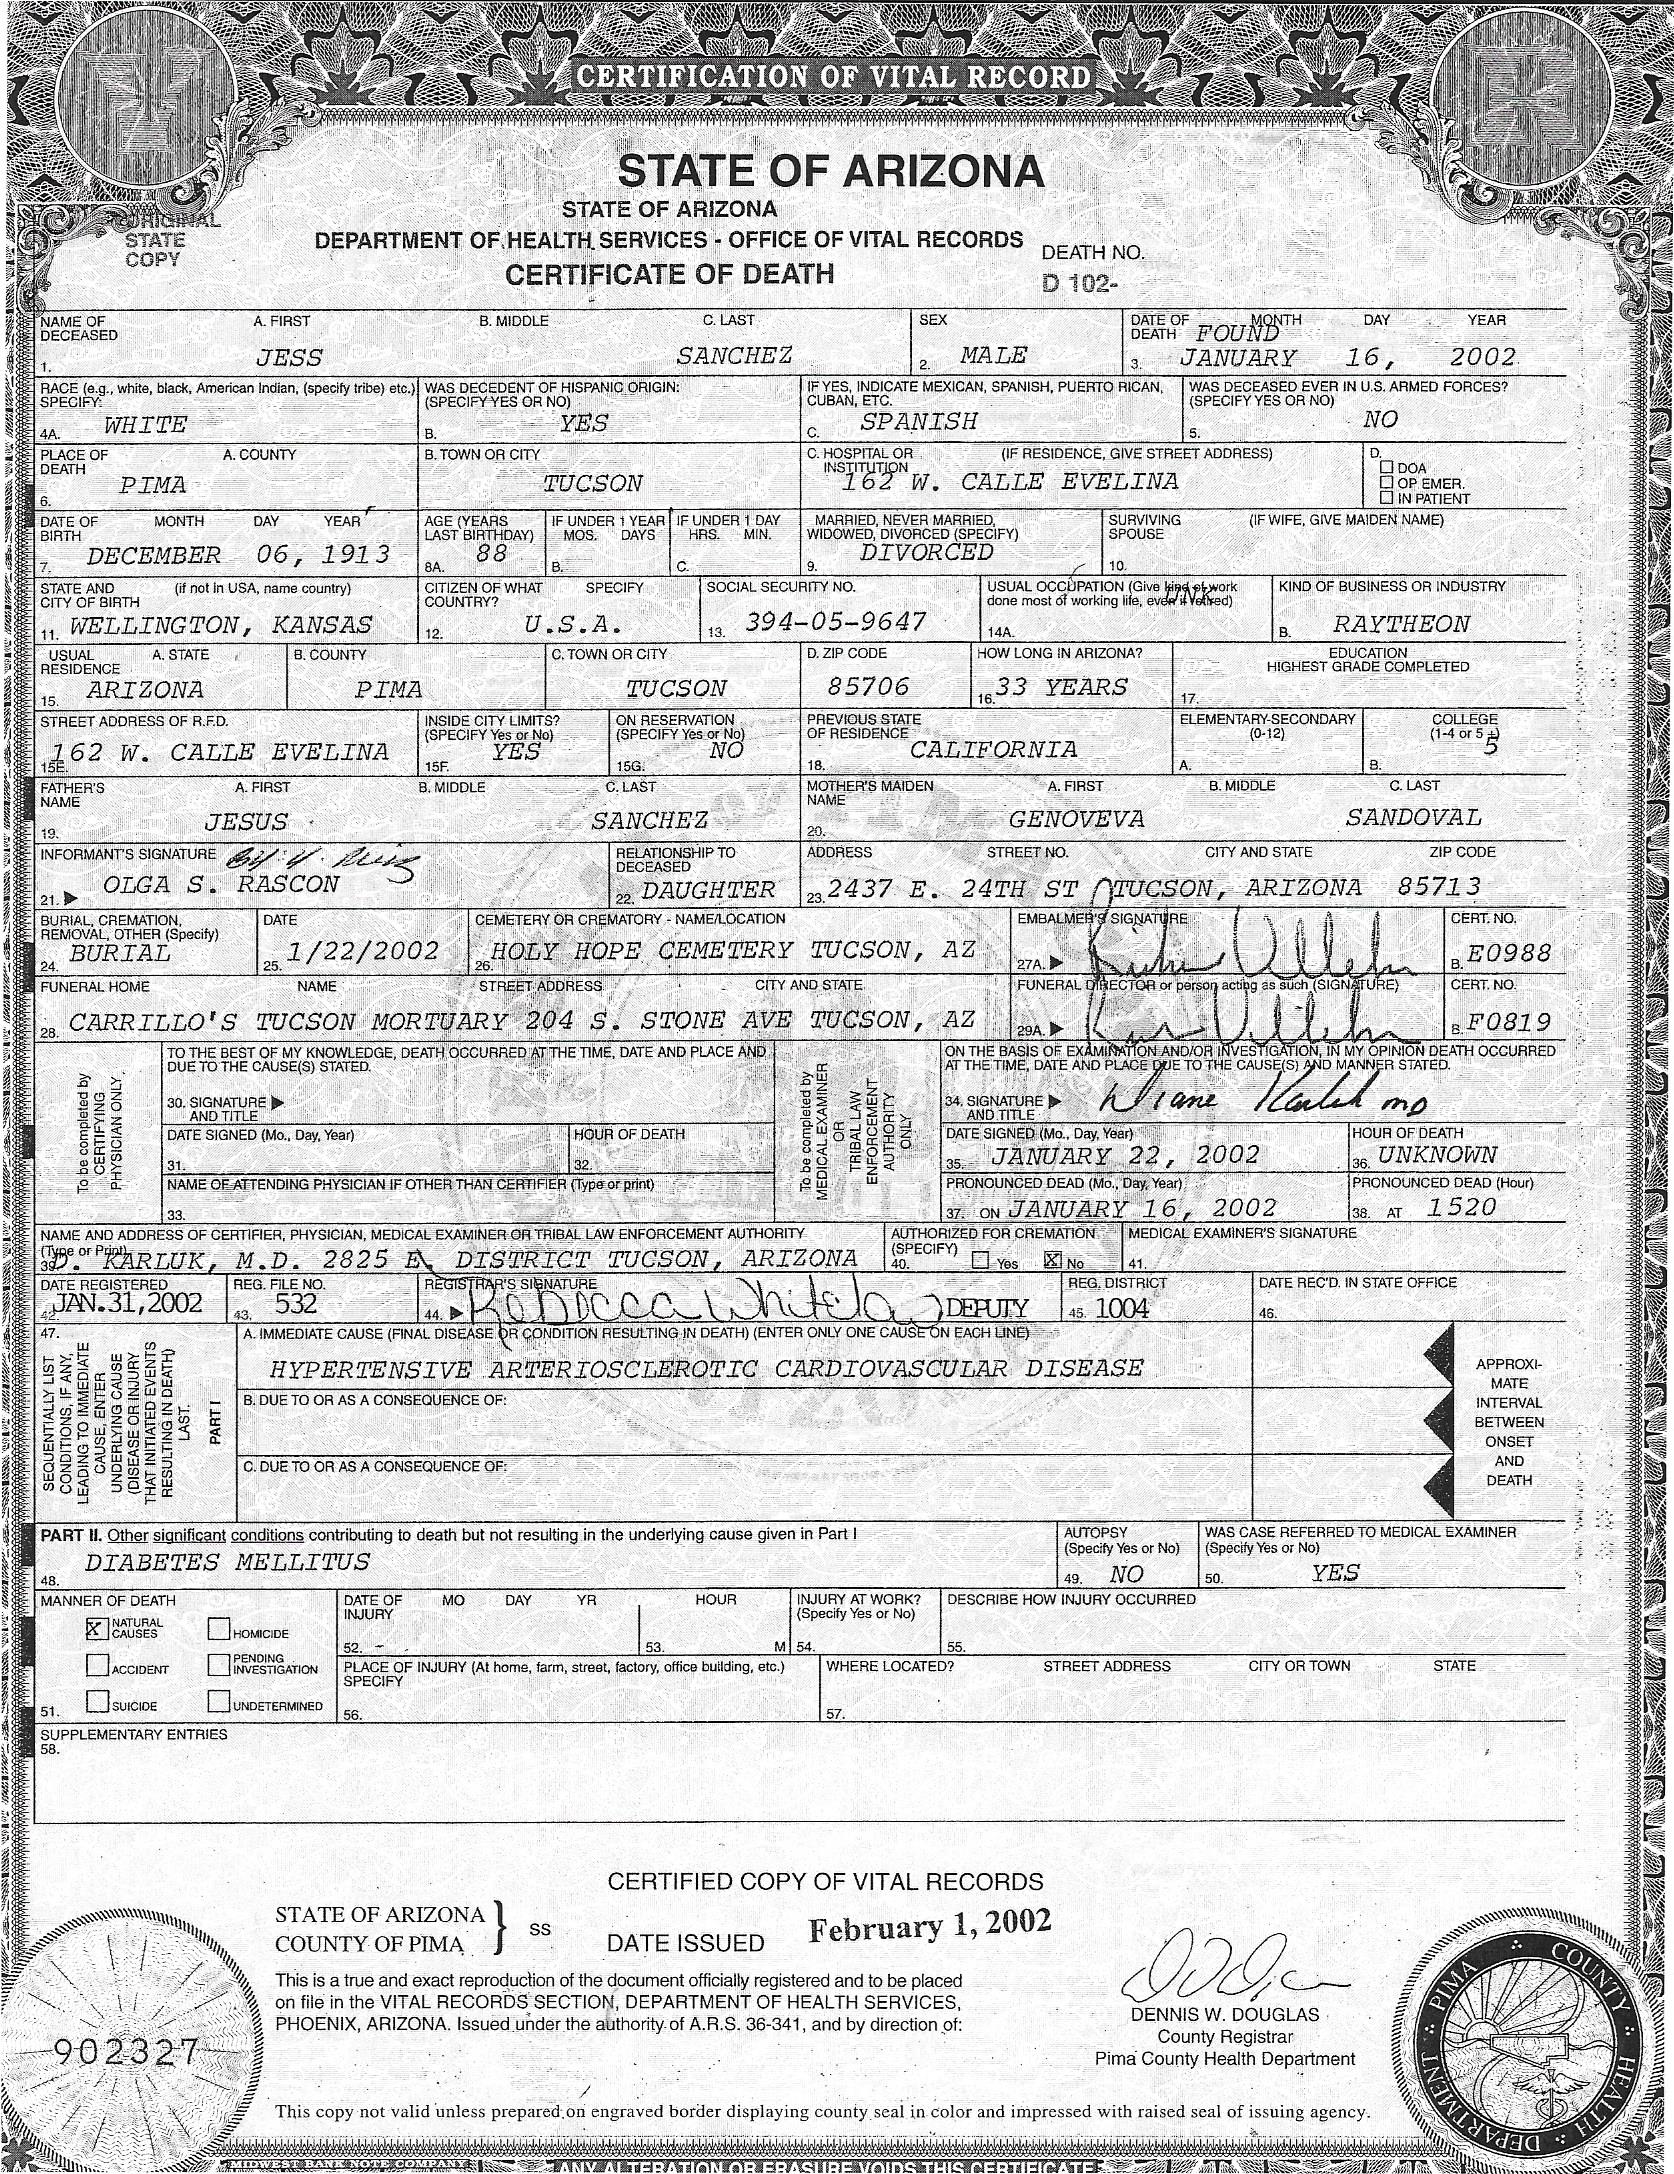 CERTIFICATION OF VITAL RECORD
STATE OF ARIZONA
STATE OF ARIZONA
DEPARTMENT OF HEALTH SERVICES - OFFICE OF VITAL RECORDS
CERTIFICATE OF DEATH
ORIGINAL
STATE
COPY
DEATH NO.
D 102-
NAME OF DECEASED A. FIRST B. MIDDLE C. LAST SEX DATE OF DEATH FOUND MONTH DAY YEAR
1. JESS SANCHEZ 2. MALE 3. JANUARY 16, 2002
RACE (e.g., white, black, American Indian, (specify tribe) etc.) SPECIFY: WAS DECEDENT OF HISPANIC ORIGIN: (SPECIFY YES OR NO) IF YES, INDICATE MEXICAN, SPANISH, PUERTO RICAN, CUBAN, ETC. WAS DECEASED EVER IN U.S. ARMED FORCES? (SPECIFY YES OR NO)
4A. WHITE B. YES C. SPANISH 5. NO
PLACE OF DEATH A. COUNTY B. TOWN OR CITY C. HOSPITAL OR INSTITUTION (IF RESIDENCE, GIVE STREET ADDRESS) D. DOA OP EMER. IN PATIENT
6. PIMA TUCSON 162 W. CALLE EVELINA
DATE OF BIRTH MONTH DAY YEAR AGE (YEARS LAST BIRTHDAY) IF UNDER 1 YEAR MOS. DAYS IF UNDER 1 DAY HRS. MIN. MARRIED, NEVER MARRIED, WIDOWED, DIVORCED (SPECIFY) SURVIVING SPOUSE (IF WIFE, GIVE MAIDEN NAME)
7. DECEMBER 06, 1913 8A. 88 B. C. 9. DIVORCED 10.
STATE AND CITY OF BIRTH (if not in USA, name country) CITIZEN OF WHAT COUNTRY? SPECIFY SOCIAL SECURITY NO. USUAL OCCUPATION (Give kind of work done most of working life, even if retired) UNK KIND OF BUSINESS OR INDUSTRY
11. WELLINGTON, KANSAS 12. U.S.A. 13. 394-05-9647 14A. B. RAYTHEON
USUAL RESIDENCE A. STATE B. COUNTY C. TOWN OR CITY D. ZIP CODE HOW LONG IN ARIZONA? EDUCATION HIGHEST GRADE COMPLETED
15. ARIZONA PIMA TUCSON 85706 16. 33 YEARS 17.
STREET ADDRESS OF R.F.D. INSIDE CITY LIMITS? (SPECIFY Yes or No) ON RESERVATION (SPECIFY Yes or No) PREVIOUS STATE OF RESIDENCE ELEMENTARY-SECONDARY (0-12) COLLEGE (1-4 or 5 +)
15E. 162 W. CALLE EVELINA 15F. YES 15G. NO 18. CALIFORNIA A. B. 5
FATHER'S NAME A. FIRST B. MIDDLE C. LAST MOTHER'S MAIDEN NAME A. FIRST B. MIDDLE C. LAST
19. JESUS SANCHEZ 20. GENOVEVA SANDOVAL
INFORMANT'S SIGNATURE RELATIONSHIP TO DECEASED ADDRESS STREET NO. CITY AND STATE ZIP CODE
21. OLGA S. RASCON 22. DAUGHTER 23. 2437 E. 24TH ST TUCSON, ARIZONA 85713
BURIAL, CREMATION, REMOVAL, OTHER (Specify) DATE CEMETERY OR CREMATORY - NAME/LOCATION EMBALMER'S SIGNATURE CERT. NO.
24. BURIAL 25. 1/22/2002 26. HOLY HOPE CEMETERY TUCSON, AZ 27A. B. E0988
FUNERAL HOME NAME STREET ADDRESS CITY AND STATE FUNERAL DIRECTOR or person acting as such (SIGNATURE) CERT. NO.
28. CARRILLO'S TUCSON MORTUARY 204 S. STONE AVE TUCSON, AZ 29A. B. F0819
To be completed by CERTIFYING PHYSICIAN ONLY.
TO THE BEST OF MY KNOWLEDGE, DEATH OCCURRED AT THE TIME, DATE AND PLACE AND DUE TO THE CAUSE(S) STATED.
30. SIGNATURE AND TITLE
DATE SIGNED (Mo., Day, Year) HOUR OF DEATH
31. 32.
NAME OF ATTENDING PHYSICIAN IF OTHER THAN CERTIFIER (Type or print)
33.
To be completed by MEDICAL EXAMINER OR TRIBAL LAW ENFORCEMENT AUTHORITY ONLY
ON THE BASIS OF EXAMINATION AND/OR INVESTIGATION, IN MY OPINION DEATH OCCURRED AT THE TIME, DATE AND PLACE DUE TO THE CAUSE(S) AND MANNER STATED.
34. SIGNATURE AND TITLE Diane Karluk MD
DATE SIGNED (Mo., Day, Year) HOUR OF DEATH
35. JANUARY 22, 2002 36. UNKNOWN
PRONOUNCED DEAD (Mo., Day, Year) PRONOUNCED DEAD (Hour)
37. ON JANUARY 16, 2002 38. AT 1520
NAME AND ADDRESS OF CERTIFIER, PHYSICIAN, MEDICAL EXAMINER OR TRIBAL LAW ENFORCEMENT AUTHORITY (Type or Print) AUTHORIZED FOR CREMATION (SPECIFY) MEDICAL EXAMINER'S SIGNATURE
39. D. KARLUK, M.D. 2825 E. DISTRICT TUCSON, ARIZONA 40. Yes X No 41.
DATE REGISTERED REG. FILE NO. REGISTRAR'S SIGNATURE REG. DISTRICT DATE REC'D. IN STATE OFFICE
42. JAN. 31, 2002 43. 532 44. Rebecca DEPUTY 45. 1004 46.
47.
SEQUENTIALLY LIST CONDITIONS, IF ANY, LEADING TO IMMEDIATE CAUSE, ENTER UNDERLYING CAUSE (DISEASE OR INJURY THAT INITIATED EVENTS RESULTING IN DEATH) LAST.
PART I
A. IMMEDIATE CAUSE (FINAL DISEASE OR CONDITION RESULTING IN DEATH) (ENTER ONLY ONE CAUSE ON EACH LINE)
HYPERTENSIVE ARTERIOSCLEROTIC CARDIOVASCULAR DISEASE
B. DUE TO OR AS A CONSEQUENCE OF:
C. DUE TO OR AS A CONSEQUENCE OF:
APPROXI-
MATE
INTERVAL
BETWEEN
ONSET
AND
DEATH
PART II. Other significant conditions contributing to death but not resulting in the underlying cause given in Part I AUTOPSY (Specify Yes or No) WAS CASE REFERRED TO MEDICAL EXAMINER (Specify Yes or No)
48. DIABETES MELLITUS 49. NO 50. YES
MANNER OF DEATH DATE OF INJURY MO DAY YR HOUR INJURY AT WORK? (Specify Yes or No) DESCRIBE HOW INJURY OCCURRED
X NATURAL CAUSES HOMICIDE
52. 53. M 54. 55.
ACCIDENT PENDING INVESTIGATION
PLACE OF INJURY (At home, farm, street, factory, office building, etc.) SPECIFY WHERE LOCATED? STREET ADDRESS CITY OR TOWN STATE
51. SUICIDE UNDETERMINED 56. 57.
SUPPLEMENTARY ENTRIES
58.
CERTIFIED COPY OF VITAL RECORDS
STATE OF ARIZONA
COUNTY OF PIMA } ss
DATE ISSUED February 1, 2002
This is a true and exact reproduction of the document officially registered and to be placed
on file in the VITAL RECORDS SECTION, DEPARTMENT OF HEALTH SERVICES,
PHOENIX, ARIZONA. Issued under the authority of A.R.S. 36-341, and by direction of:
DENNIS W. DOUGLAS
County Registrar
Pima County Health Department
902327
PIMA COUNTY HEALTH DEPARTMENT
This copy not valid unless prepared on engraved border displaying county seal in color and impressed with raised seal of issuing agency.
MIDWEST BANK NOTE COMPANY
ANY ALTERATION OR ERASURE VOIDS THIS CERTIFICATE